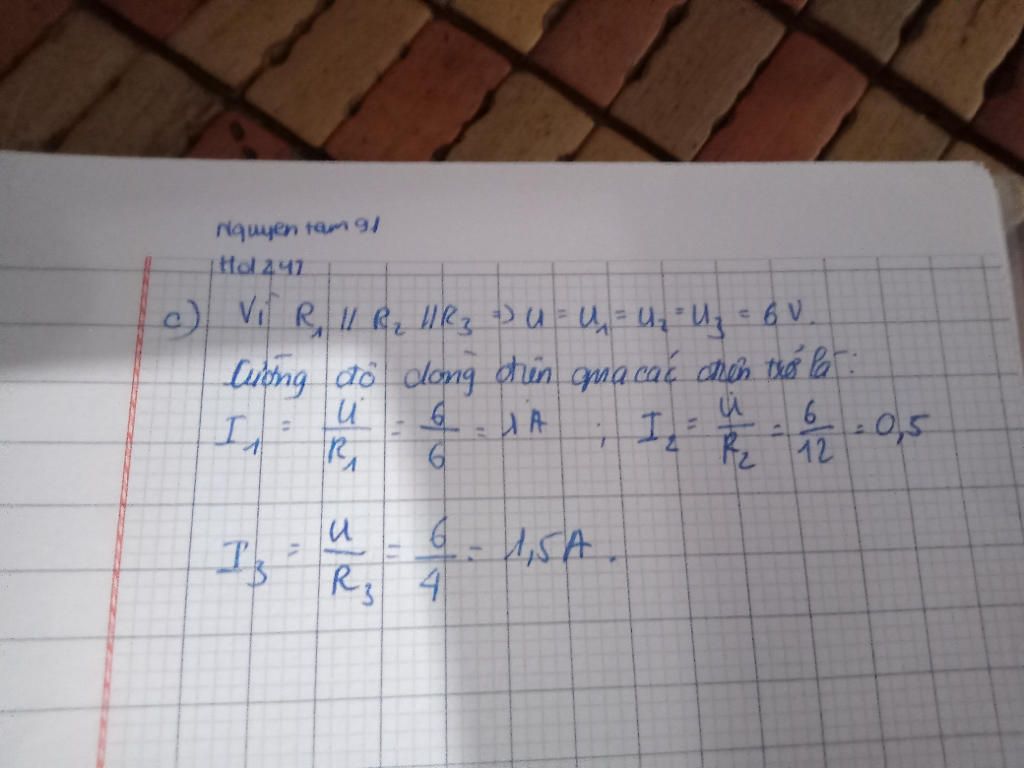 Nguyen tam 91
Hd 247
c) Vì R₁ // R₂ // R₃ => U = U₁ = U₂ = U₃ = 6 V.
Cường độ dòng điện qua các điện trở là:
I₁ = U/R₁ = 6/6 = 1A ; I₂ = U/R₂ = 6/12 = 0,5
I₃ = U/R₃ = 6/4 = 1,5A.